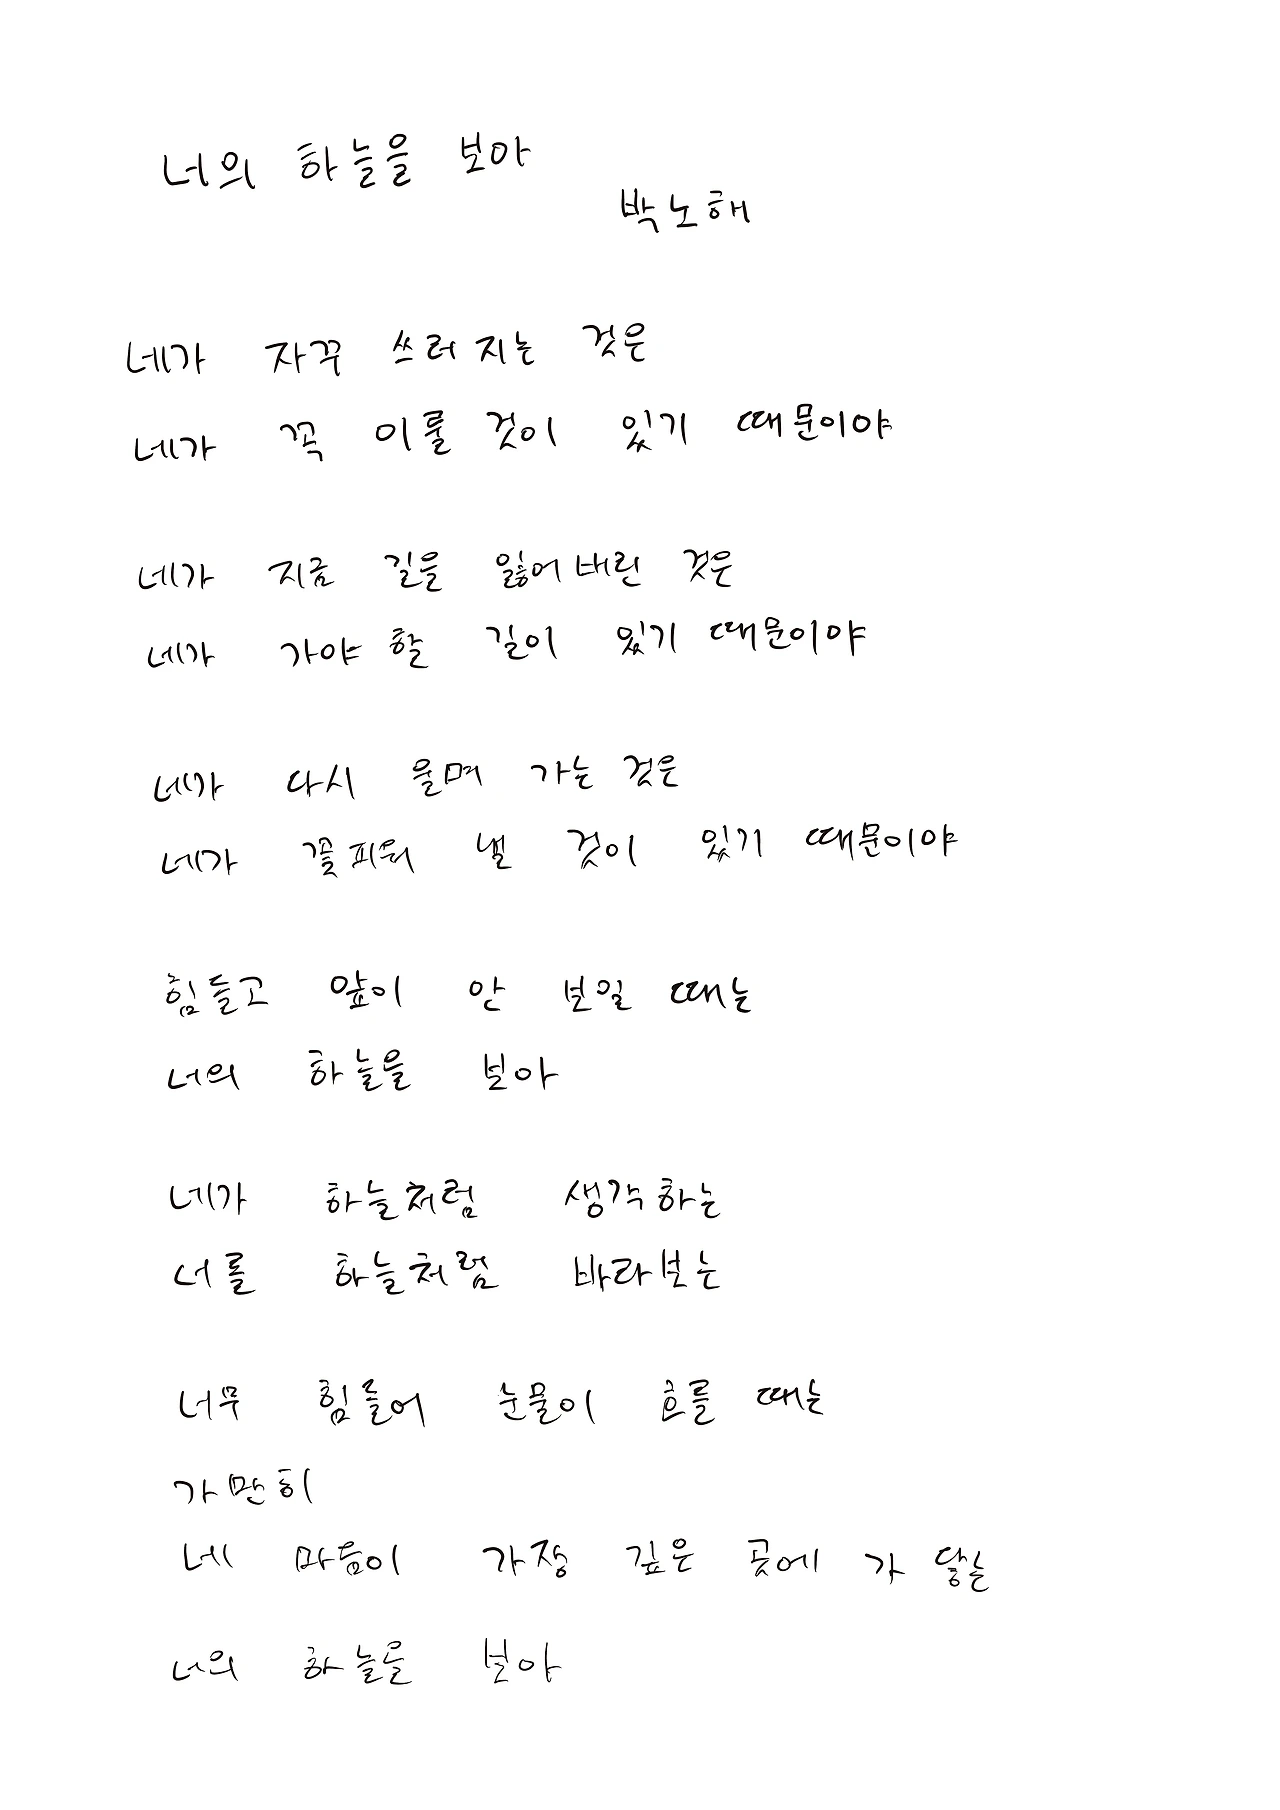 너의 하늘을 보아
박노해
네가 자꾸 쓰러지는 것은
네가 꼭 이룰 것이 있기 때문이야
네가 지금 길을 잃어버린 것은
네가 가야 할 길이 있기 때문이야
네가 다시 울며 가는 것은
네가 꽃피워 낼 것이 있기 때문이야
힘들고 앞이 안 보일 때는
너의 하늘을 보아
네가 하늘처럼 생각하는
너를 하늘처럼 바라보는
너무 힘들어 눈물이 흐를 때는
가만히
네 마음이 가장 깊은 곳에 가 닿는
너의 하늘을 보아